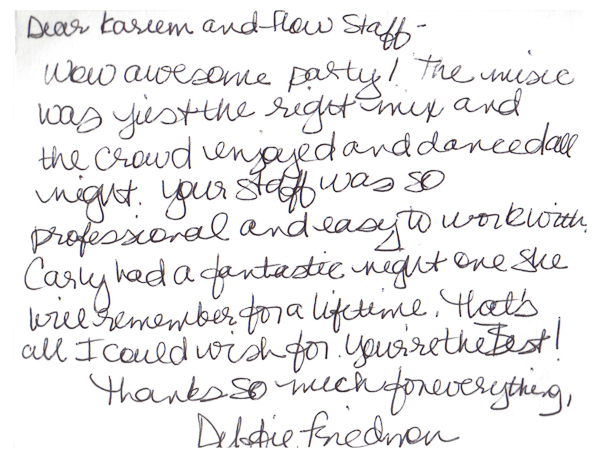 Dear Kareem and Flow Staff-
Wow awesome party! The music
was just the right mix and
the crowd enjoyed and danced all
night. Your staff was so
professional and easy to work with.
Carly had a fantastic night one she
will remember for a lifetime. That's
all I could wish for. You're the Best!
Thanks so much for everything,
Debbie Friedman